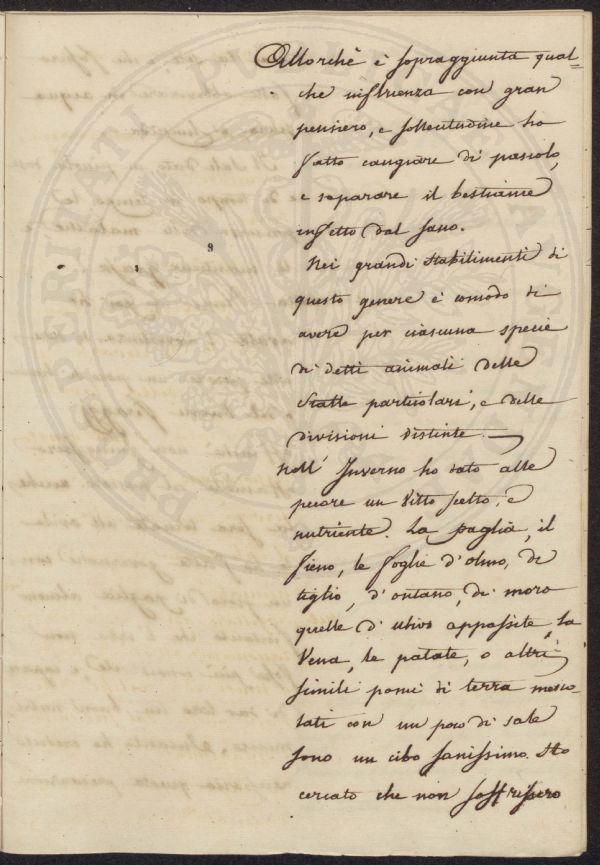 Allorchè è sopraggiunta qual=
che influenza con gran
pensiero, e sollecitudine ho
fatto cangiare di pascolo,
e separare il bestiame
infetto dal sano.
Nei grandi stabilimenti di
questo genere è comodo di
avere per ciascuna specie
di detti animali delle
Stalle particolari, e delle
divisioni distinte.
Nell' Inverno ho dato alle
pecore un Vitto scelto, e
nutriente. La paglia, il
fieno, le foglie d'olmo, di
tiglio, d'ontano, di moro
quelle d'ulivo appassite, la
Vena, le patate, o altri
simili pomi di terra mesco-
lati con un poco di sale
sono un cibo sanissimo. Ho
cercato che non soffrissero